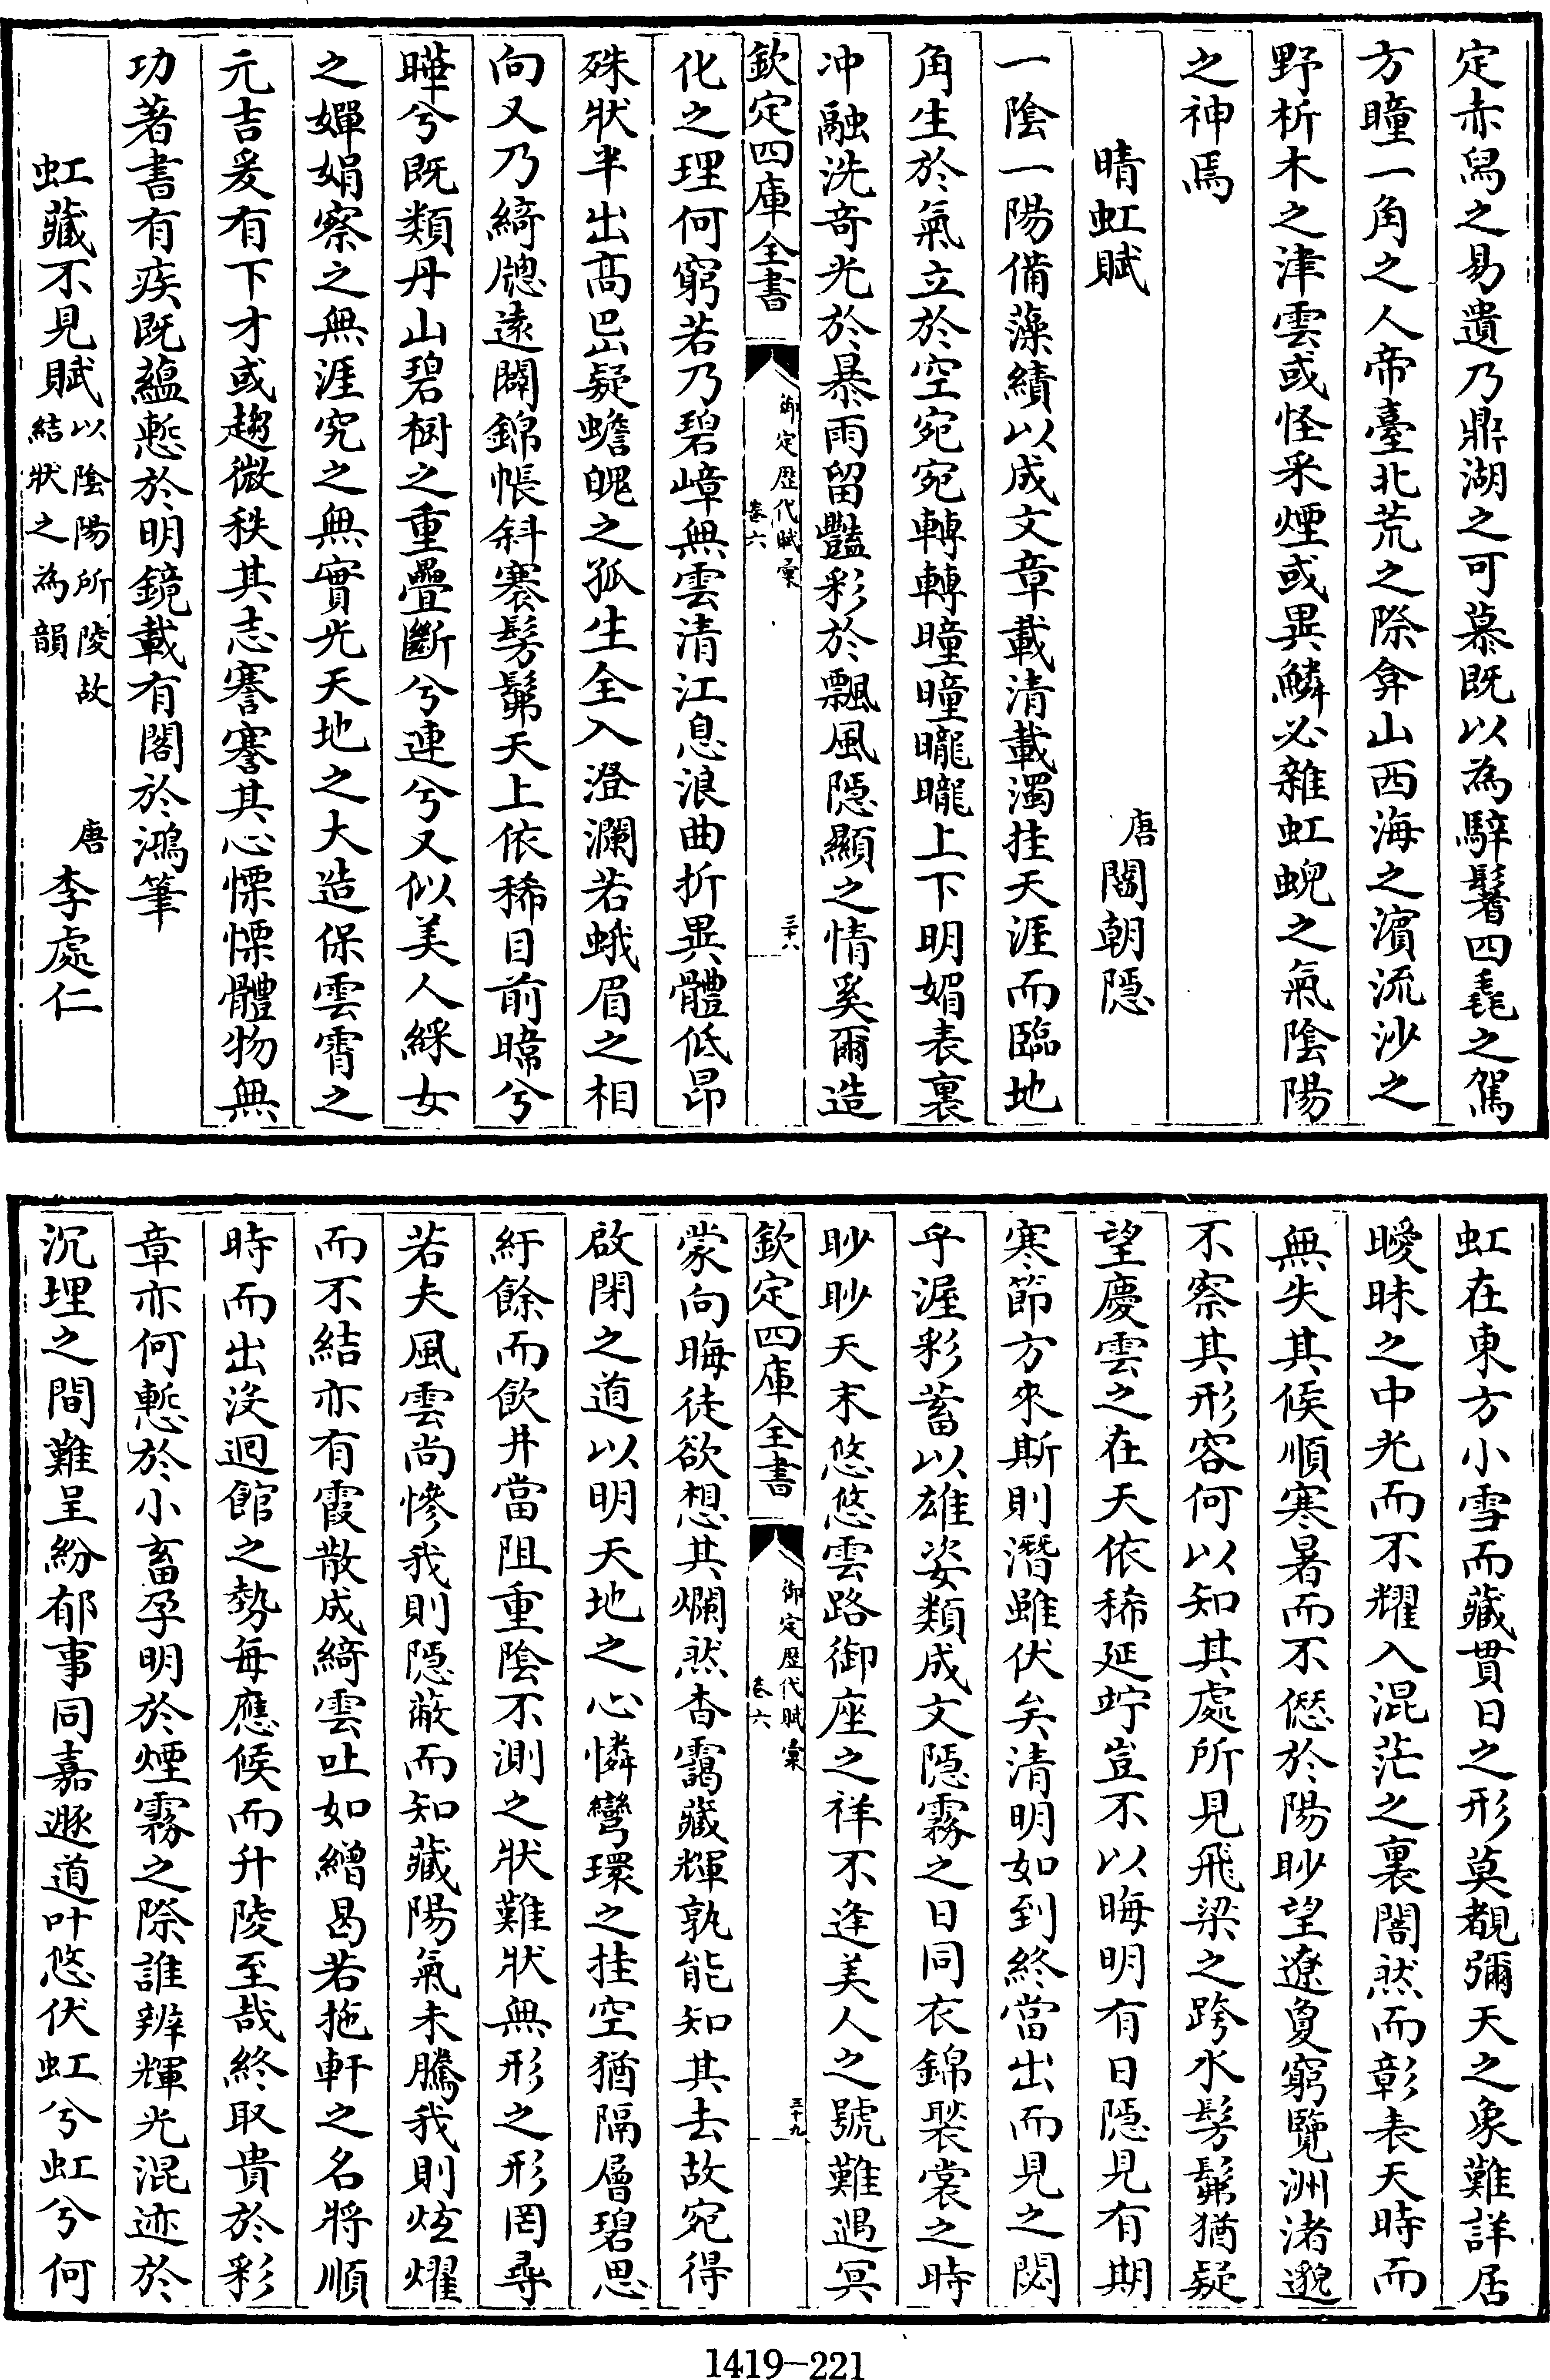 定赤舄之易遺乃鼎湖之可慕既以為騂鬐四毳之駕
方瞳一角之人帝臺北荒之際弇山西海之濱流沙之
野析木之津雲或怪采煙或異鱗必雜虹蜺之氣陰陽
之神焉
晴虹賦
唐 閻朝隱
一陰一陽備藻繢以成文章載清載濁挂天涯而臨地
角生於氣立於空宛宛轉轉曈曈曨曨上下明媚表裏
冲融洗竒光於暴雨留豔彩於飄風隱顯之情奚爾造
欽定四庫全書
御定歴代賦彙
卷六
三十八
化之理何窮若乃碧嶂無雲清江息浪曲折異體低昂
殊狀半出髙岊疑蟾魄之孤生全入澄瀾若蛾眉之相
向又乃綺牎遠闢錦帳斜褰髣髴天上依稀目前暐兮
曄兮既類丹山碧樹之重疊斷兮連兮又似美人綵女
之嬋娟察之無涯究之無實光天地之大造保雲霄之
元吉爰有下才或趨微秩其志謇謇其心慄慄體物無
功著書有疾既蘊慙於明鏡載有閣於鴻筆
虹藏不見賦
以陰陽所陵故
結狀之為韻
唐 李處仁
虹在東方小雪而藏貫日之形莫覩彌天之象難詳居
曖昧之中光而不耀入混茫之裏闇然而彰表天時而
無失其候順寒暑而不愆於陽眇望遼夐窮覽洲渚邈
不察其形容何以知其處所見飛梁之跨水髣髴猶疑
望慶雲之在天依稀延竚豈不以晦明有日隱見有期
寒節方來斯則潛雖伏矣清明如到終當出而見之閟
乎渥彩蓄以雄姿類成文隱霧之日同衣錦褧裳之時
眇眇天末悠悠雲路御座之祥不逢美人之號難遇冥
欽定四庫全書
御定歴代賦彙
卷六
三十九
蒙向晦徒欲想其爛然杳靄藏輝孰能知其去故宛得
啟閉之道以明天地之心憐彎環之挂空猶隔層碧思
紆餘而飲井當阻重陰不測之狀難狀無形之形罔尋
若夫風雲尚慘我則隱蔽而知藏陽氣未騰我則炫燿
而不結亦有霞散成綺雲吐如繒曷若拖軒之名將順
時而出沒迴館之勢每應候而升陵至哉終取貴於彩
章亦何慙於小畜孕明於煙霧之際誰辨輝光混迹於
沉埋之間難呈紛郁事同嘉遯道叶悠伏虹兮虹兮何
1419-221